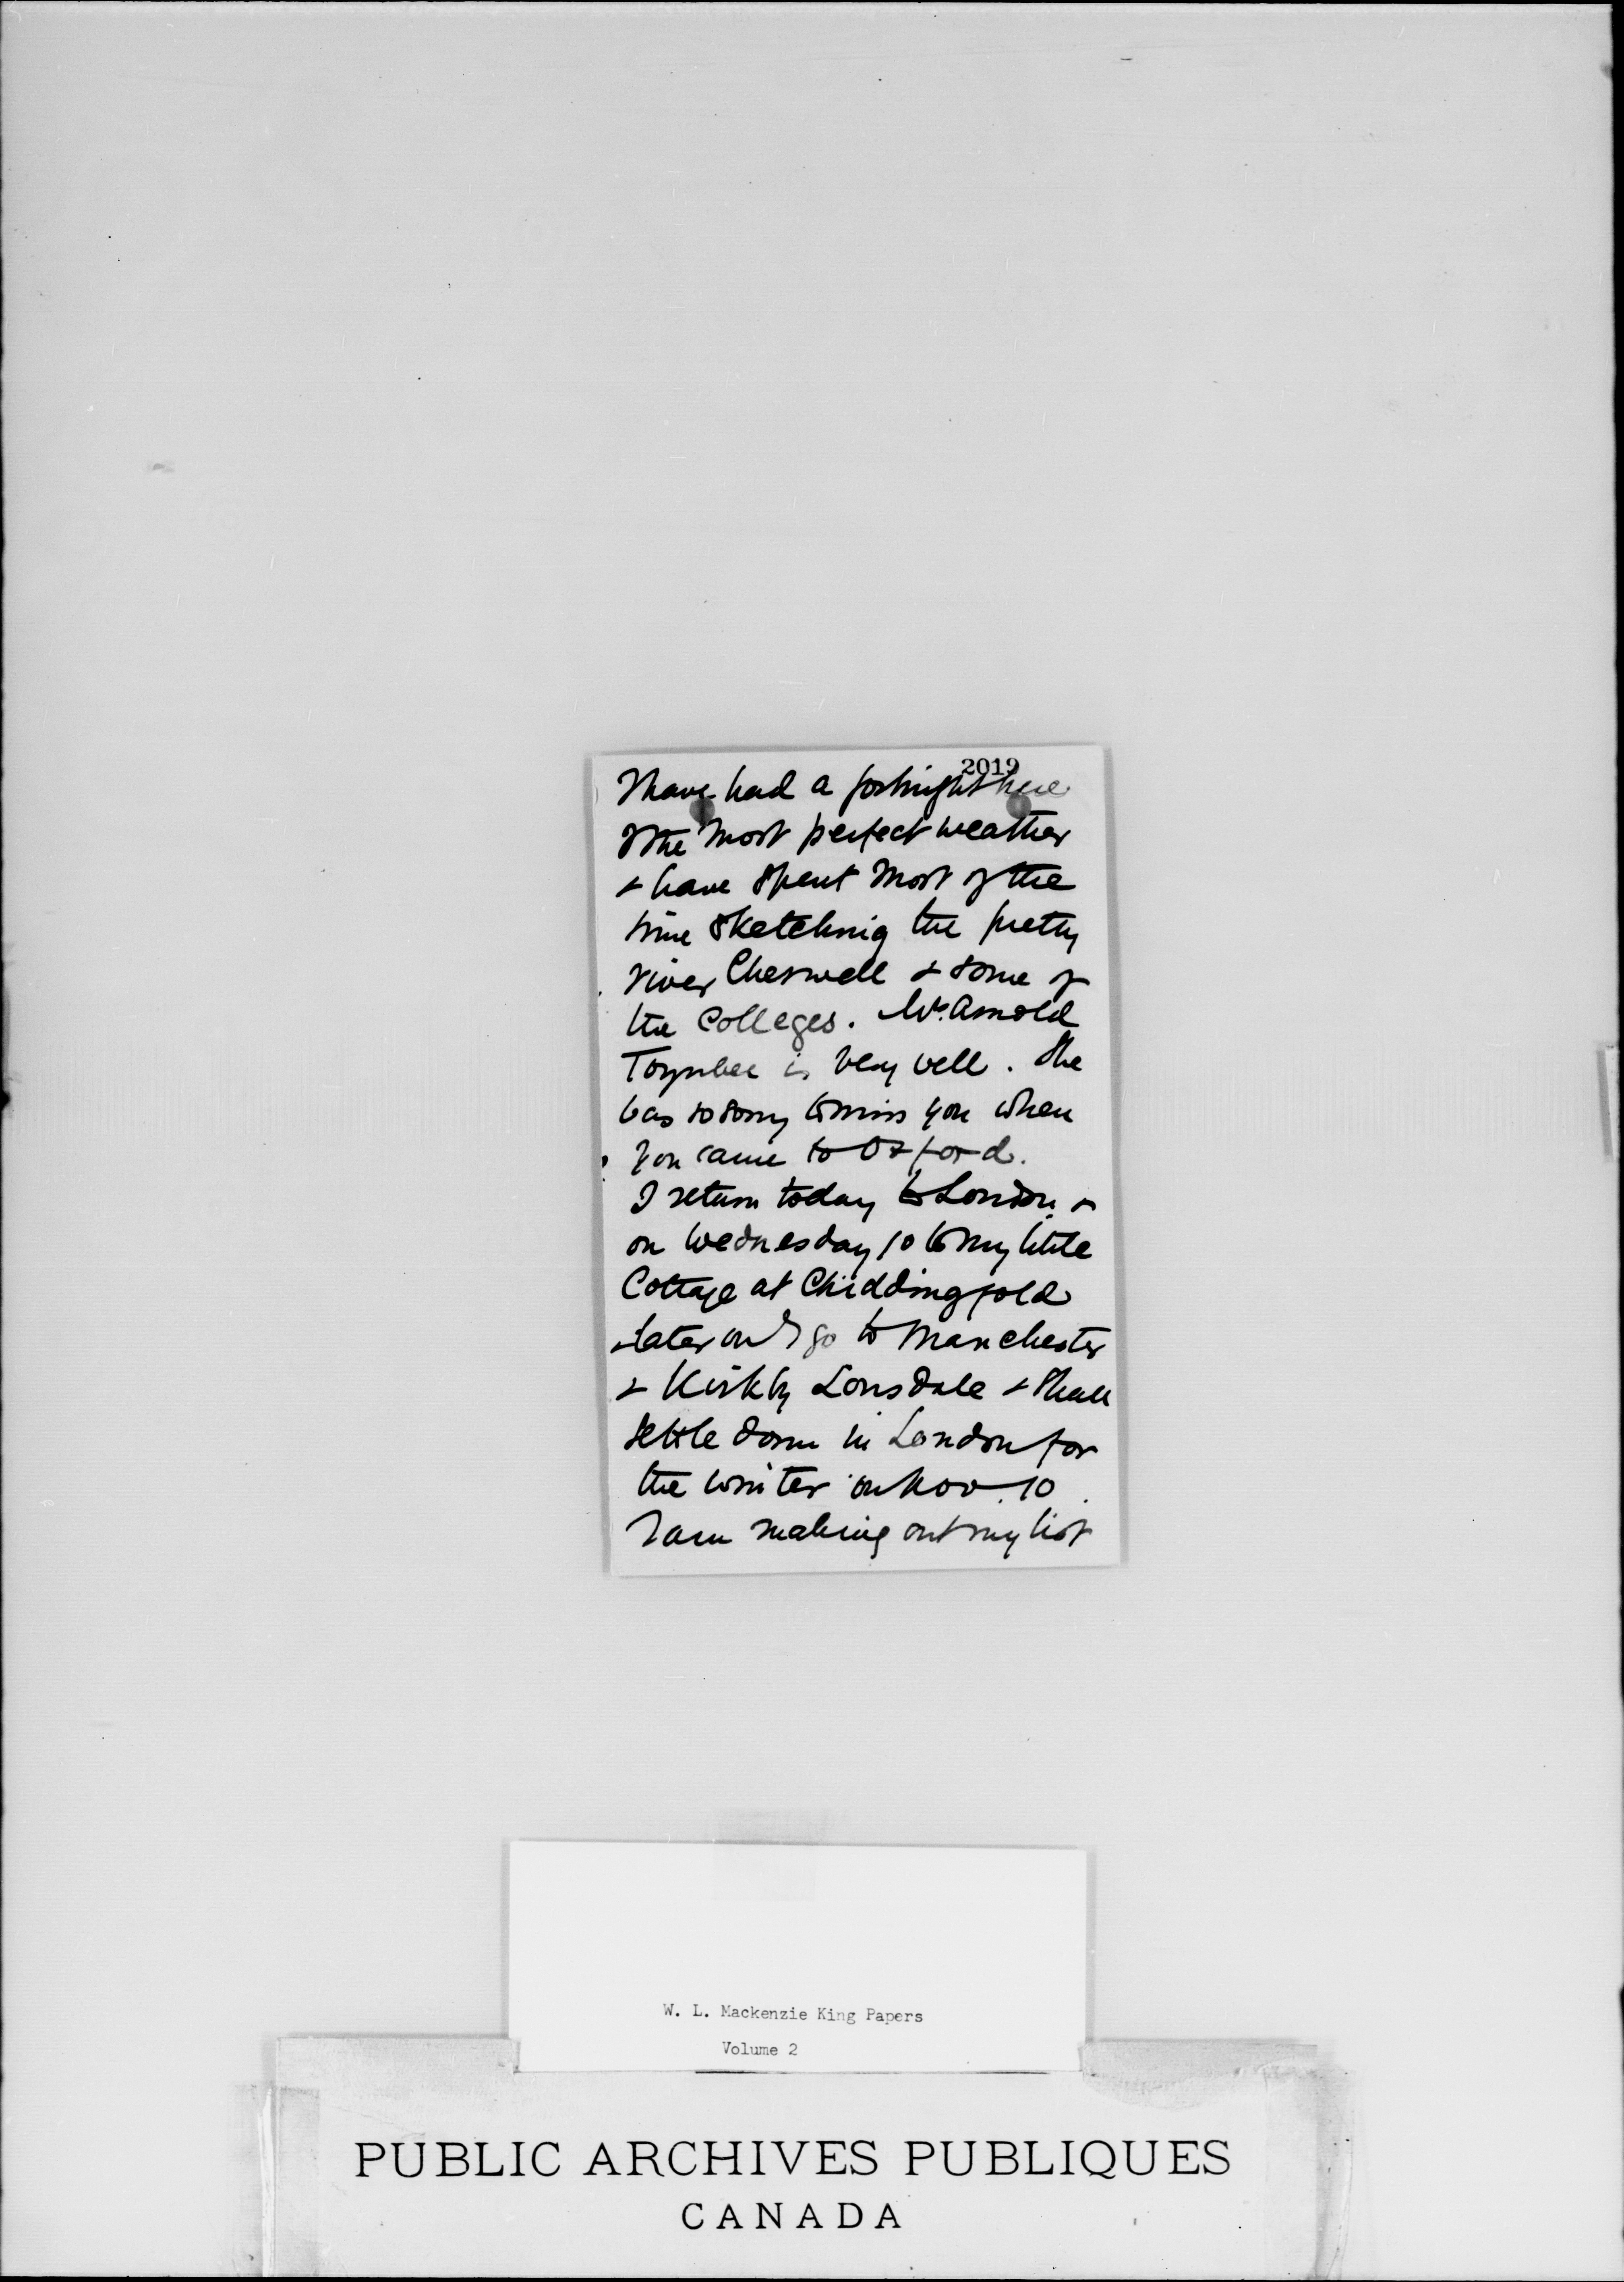 2019
I have had a fortnight here
& the most perfect weather
& have spent most of the
time sketching the pretty
river Cherwell & some of
the Colleges. Mrs. Arnold
Toynbee is very well. She
was so sorry to miss you when
you came to Oxford.
I return today to London &
on Wednesday go to my little
Cottage at Chiddingfold
& later on I go to Manchester
& Kirkby Lonsdale & shall
settle down in London for
the winter on Nov. 10.
I am making out my list
W. L. Mackenzie King Papers
Volume 2
PUBLIC ARCHIVES PUBLIQUES
CANADA